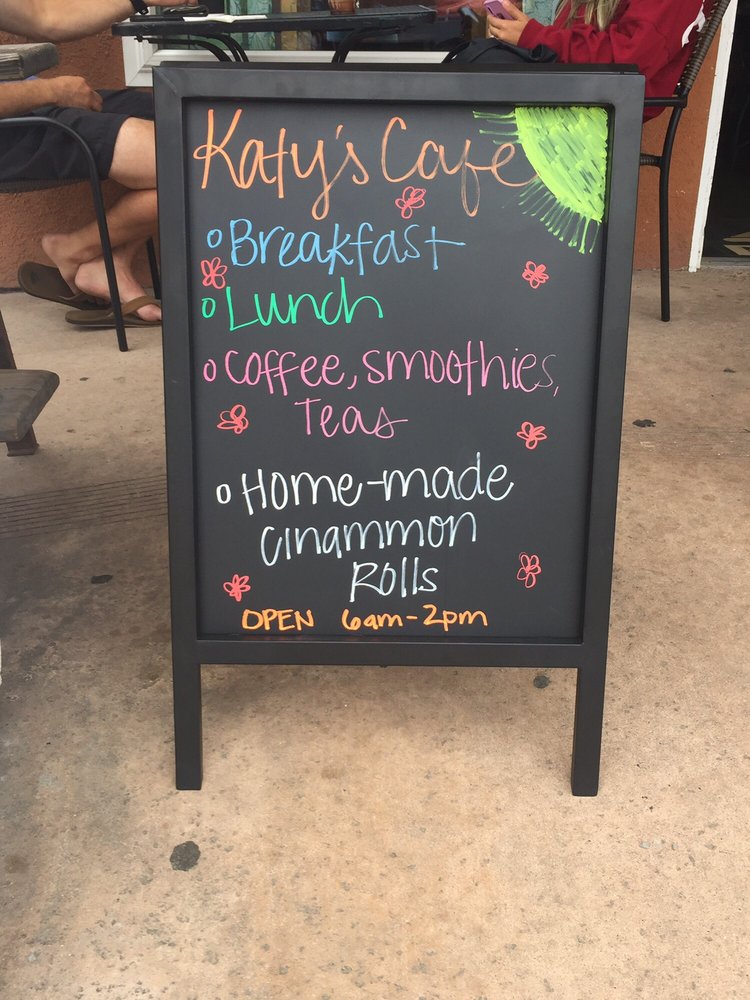 Katy's Cafe
Breakfast
Lunch
Coffee, smoothies,
Teas
Home-made
cinammon
Rolls
OPEN 6am-2pm